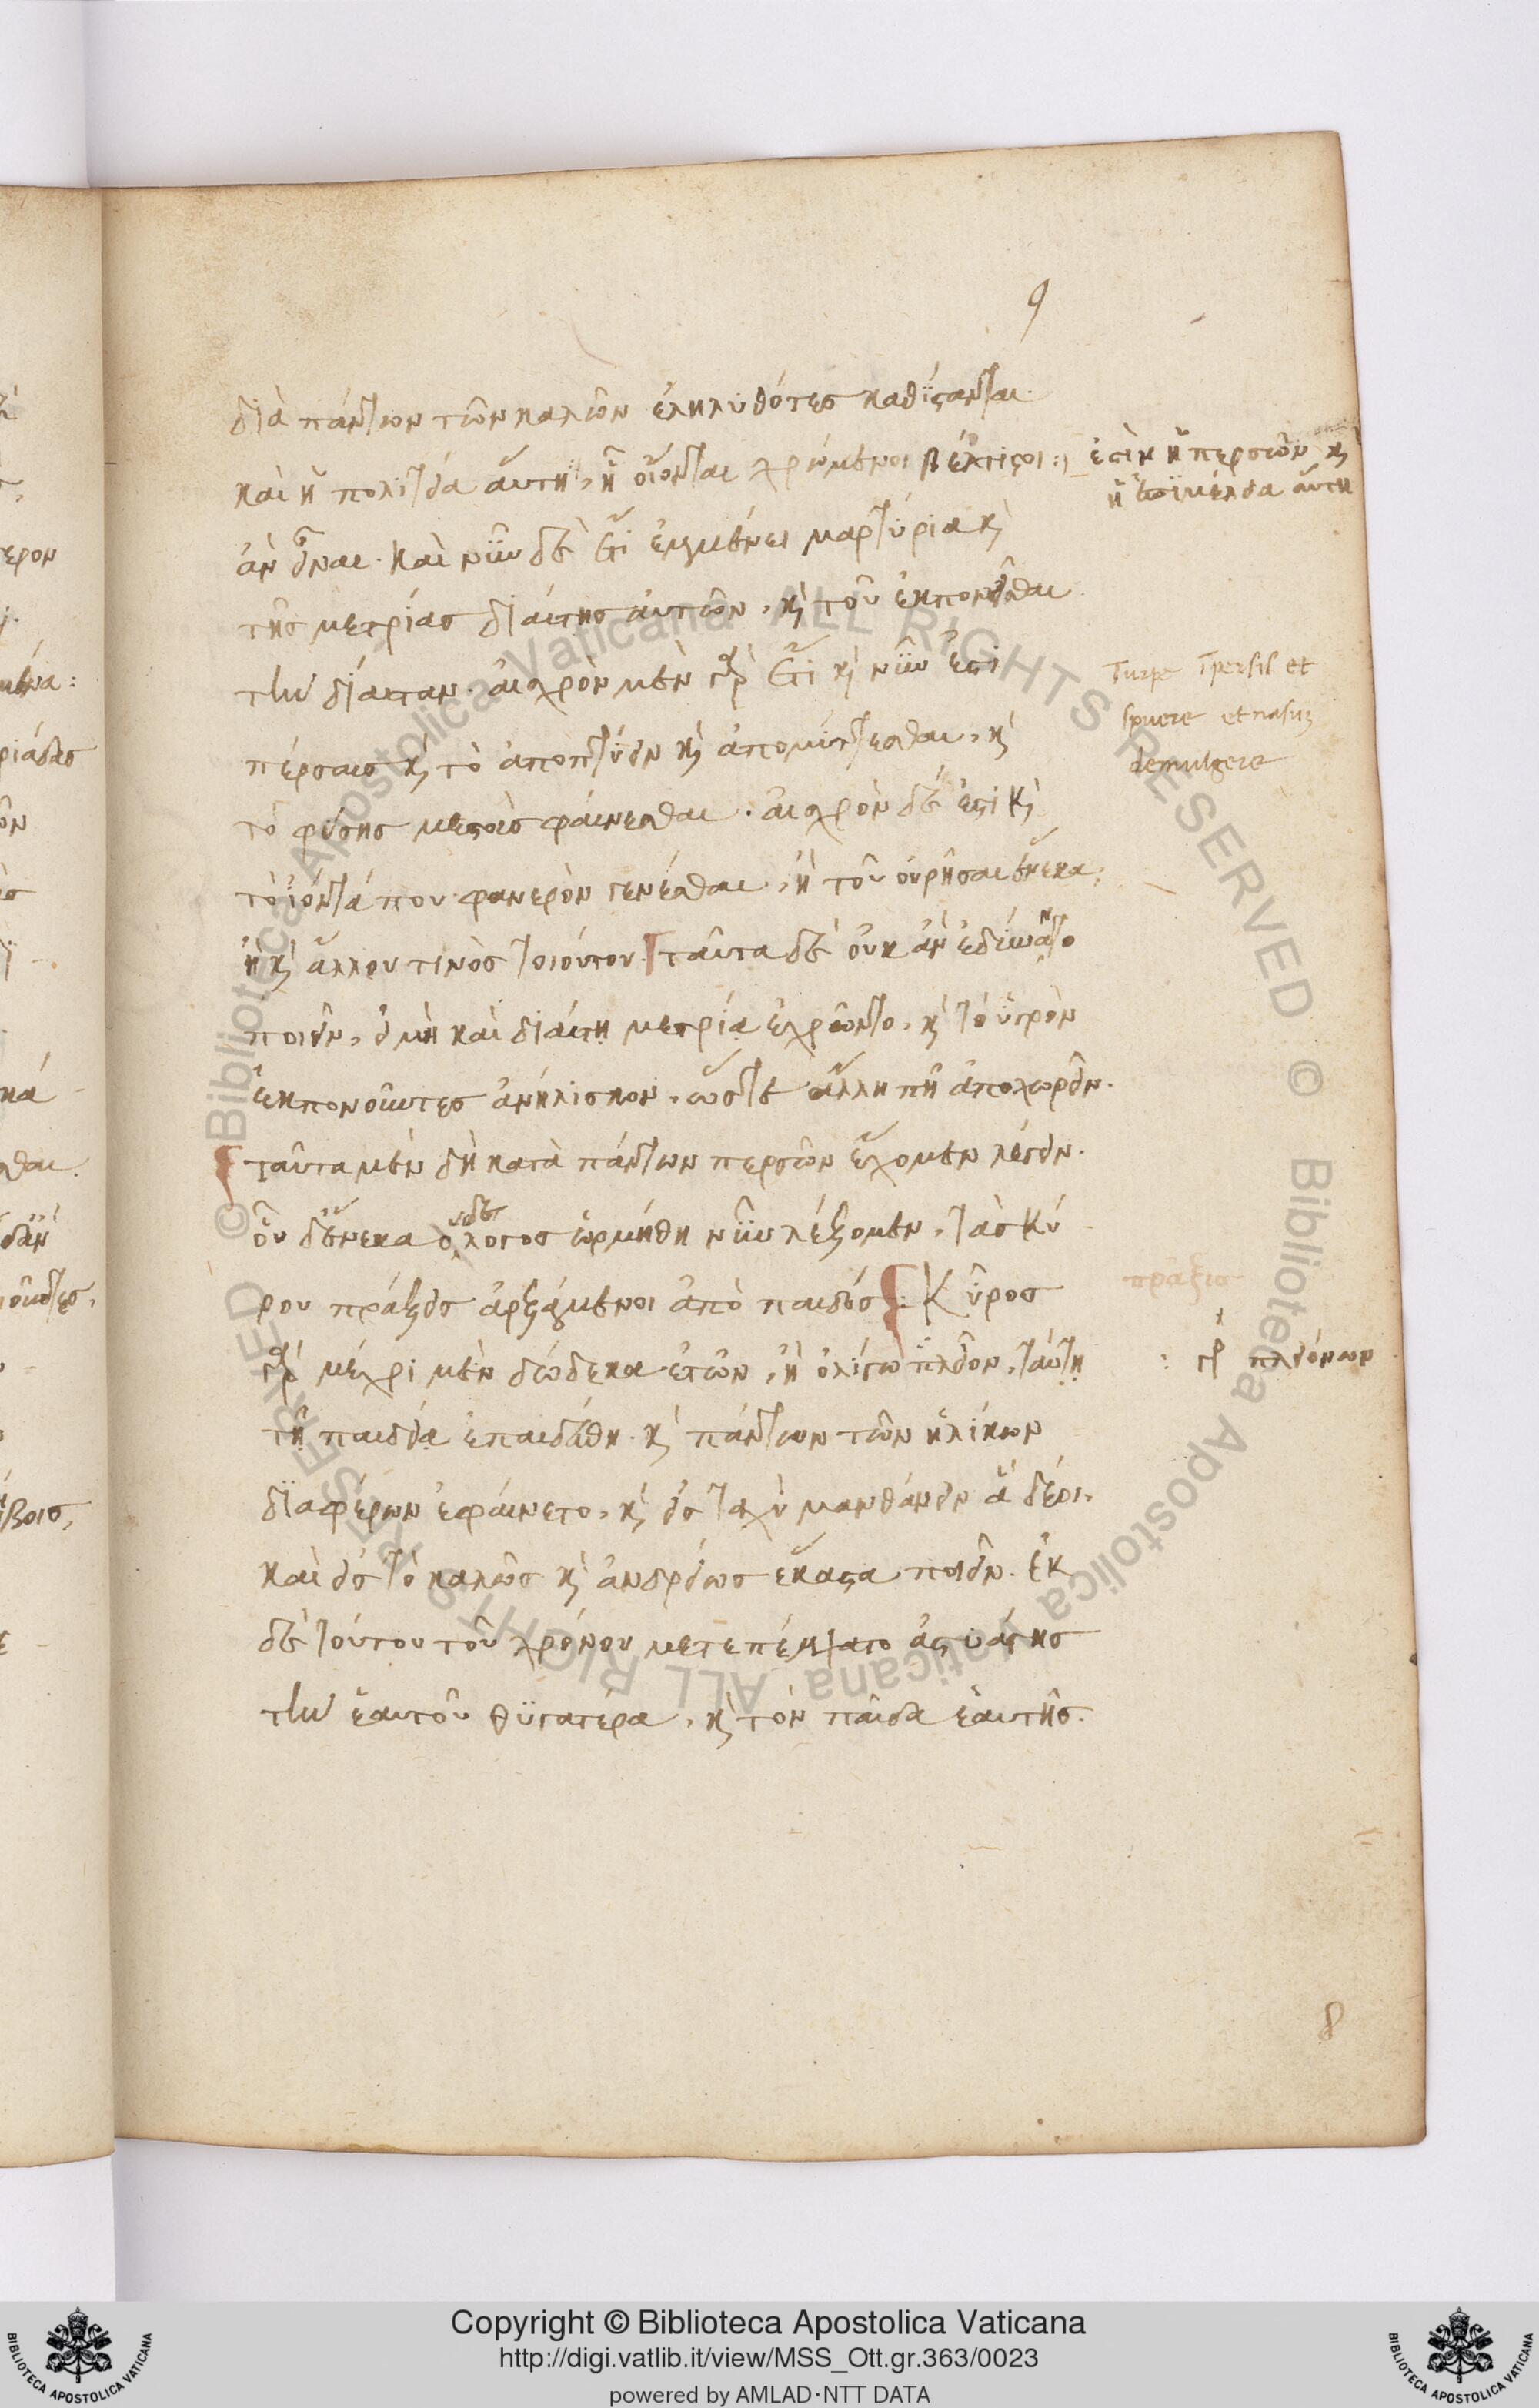 9
διὰ πάντων τῶν καλῶν ἐληλυθότες καθίστανται.
καὶ ἡ πολιτεία ἅυτη, ἧ οἴονται χρώμενοι βέλτιστοι
ἐστὶν ἡ περσῶν καὶ
ἡ ἐπιμέλεια ἅυτη
ἂν εἶναι. καὶ νῦν δὲ ἔτι ἐμμένει μαρτύρια καὶ
τῆς μετρίας διάιτης ἀυτῶν, καὶ τοῦ ἐκπονεῖσθαι
τὴν δίαιταν. ἀισχρὸν μὲν γὰρ ἔτι καὶ νῦν ἐστὶ
πέρσαις καὶ τὸ ἀποπτύειν καὶ ἀπομύττεσθαι, καὶ
Turpe ī persis et
spuere et nasuz
demulgere
τὸ φύσης μεστοὺς φάινεσθαι. ἀισχρὸν δέ ἐστι καὶ
τὸ ἰόντά που φανερὸν γενέσθαι, ἢ τοῦ ὀυρῆσαι ἕνεκα,
ἢ καὶ ἄλλου τινὸς τοιούτου. ταῦτα δὲ ὀυκ ἂν ἐδύναντο
ποιεῖν, εἰ μὴ καὶ διάιτῃ μετρίᾳ ἐχρῶντο, καὶ τὸ ὑγρὸν
ἐκπονοῦντες ἀνήλισκον, ὥστε ἄλλη πῆ ἀποχωρεῖν.
ταῦτα μὲν δὴ κατὰ πάντων περσῶν ἔχομεν λέγειν.
οὗ δ' ἕνεκα ὁ δὲ λόγος ὡρμήθη νῦν λέξομεν, τὰς κύ
ρου πράξεις ἀρξάμενοι ἀπὸ παιδός: Κῦρος
πρᾶξις
γὰρ μέχρι μὲν δώδεκα ἐτῶν, ἢ ὀλίγω πλεῖον, ταύτῃ
γρ πλειόνων
τῇ παιδείᾳ ἐπαιδεύθη. καὶ πάντων τῶν ἡλίκων
διαφέρων ἐφάινετο, καὶ εἰς ταχὺ μανθάνειν ἃ δέοι,
καὶ εἰς τὸ καλῶς καὶ ἀνδρείως ἕκαστα ποιεῖν. ἐκ
δὲ τούτου τοῦ χρόνου μετεπέμψατο ἀστυάγης
τὴν ἑαυτοῦ θυγατέρα, καὶ τὸν παῖδα ἑαυτῆς.
8
© Biblioteca Apostolica Vaticana ALL RIGHTS RESERVED © Biblioteca Apostolica Vaticana ALL RIGHTS RESERVED
Copyright © Biblioteca Apostolica Vaticana
http://digi.vatlib.it/view/MSS_Ott.gr.363/0023
powered by AMLAD·NTT DATA
BIBLIOTECA APOSTOLICA VATICANA
BIBLIOTECA APOSTOLICA VATICANA